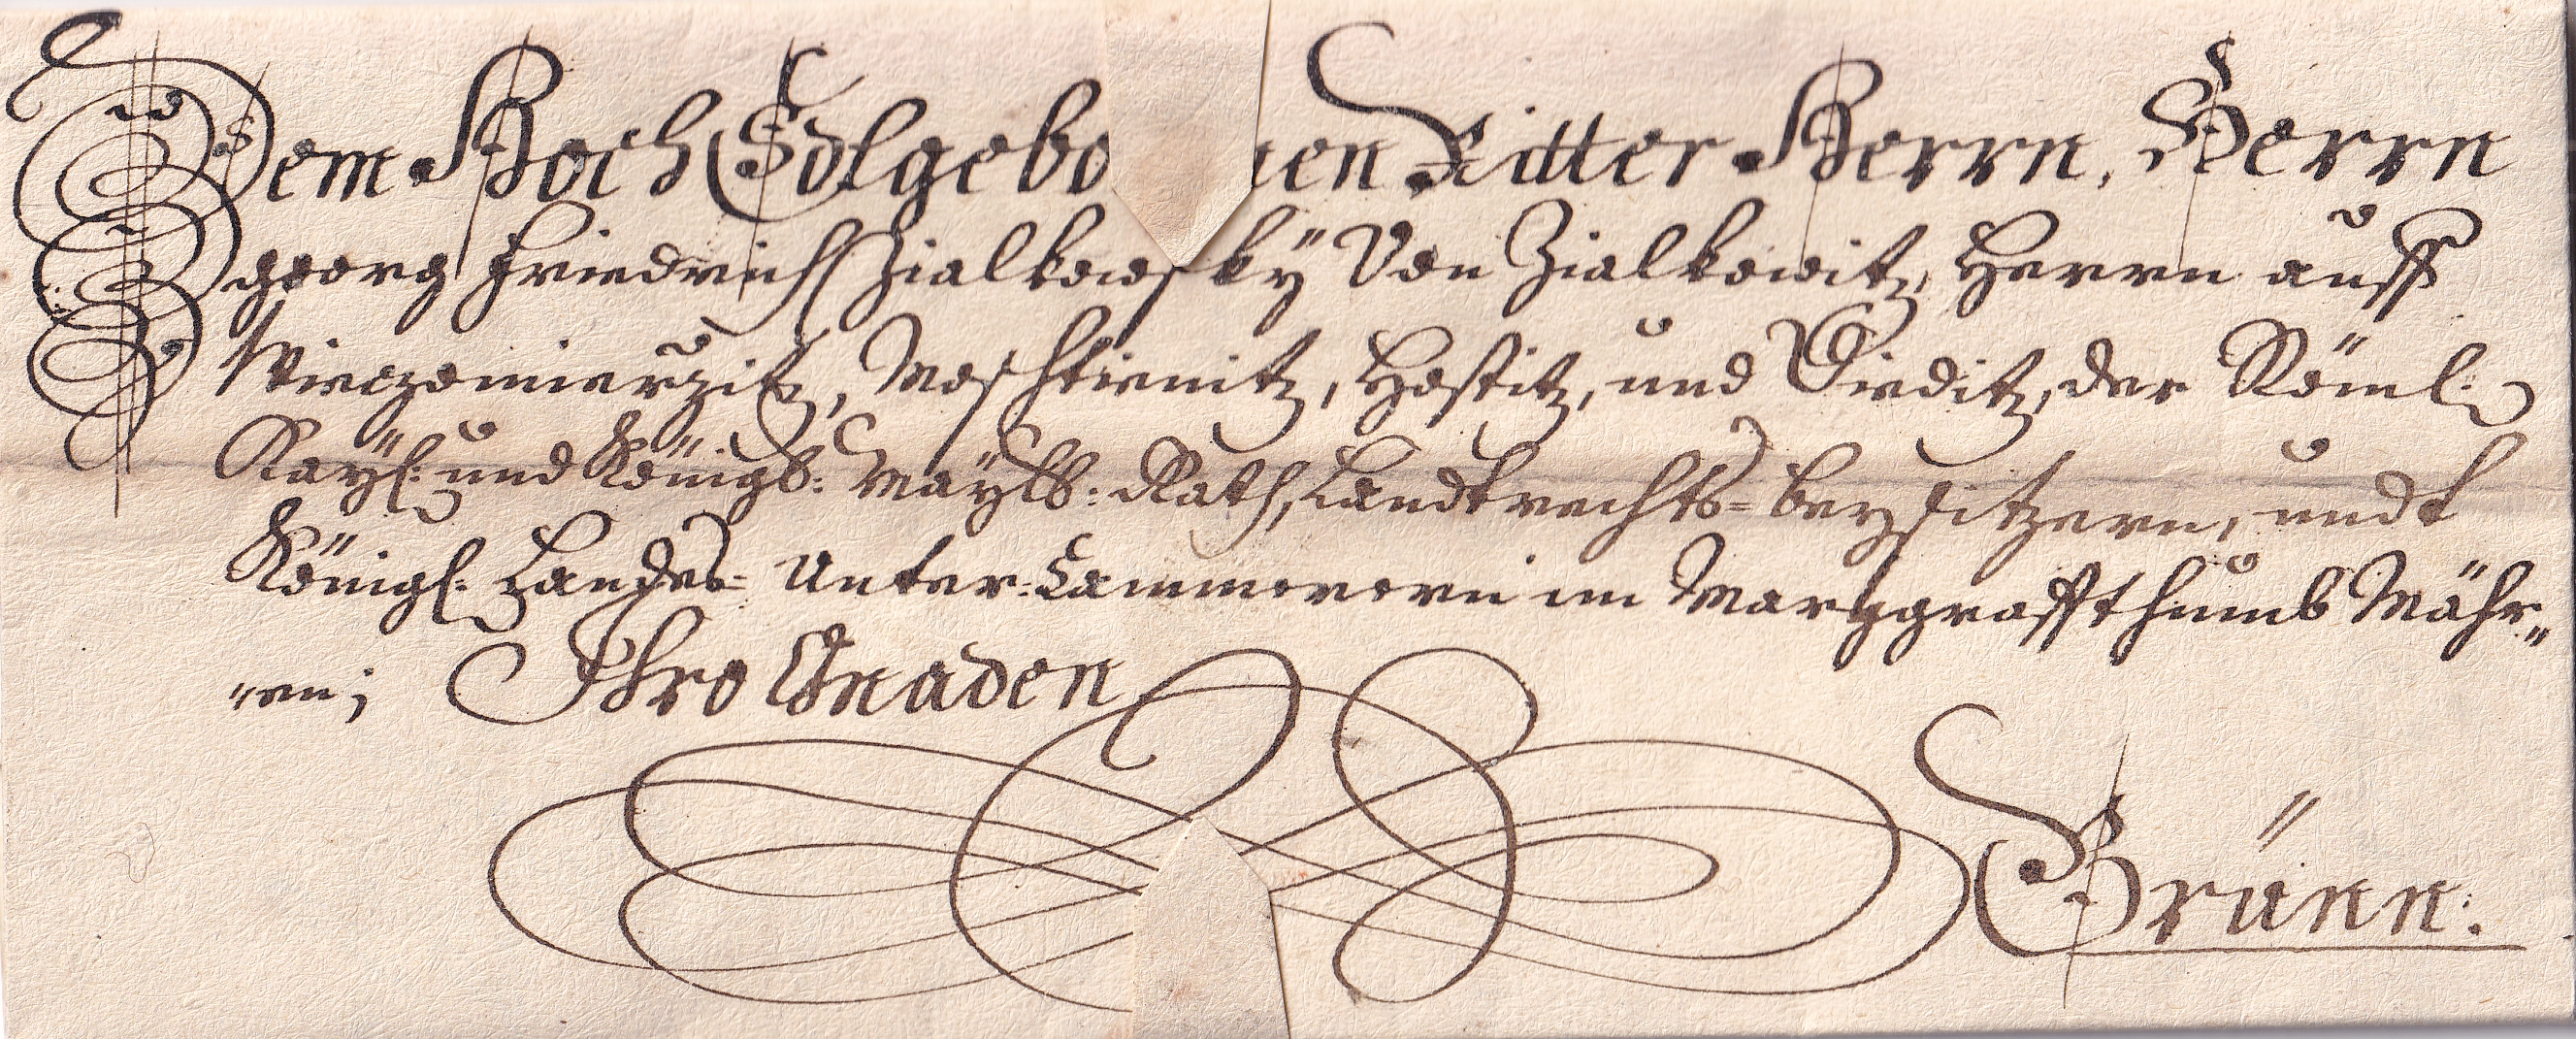 Dem Hoch Edlgebo[r]nen Ritter Herrn, Herrn
Georg Friedrich Zialkowsky Von Zialkowitz, Herrn auff
Wieczomierzitz, Moschtienitz, Hostitz, und Dieditz, der Röml:
Kayl: und Königl: Mayls: Rath, Landtrechts=beysitzern, undt
Königl. Landes= Unter=Cammerern im Marggraffthumb Mähr„
„en; Ihro Gnaden
Brünn: